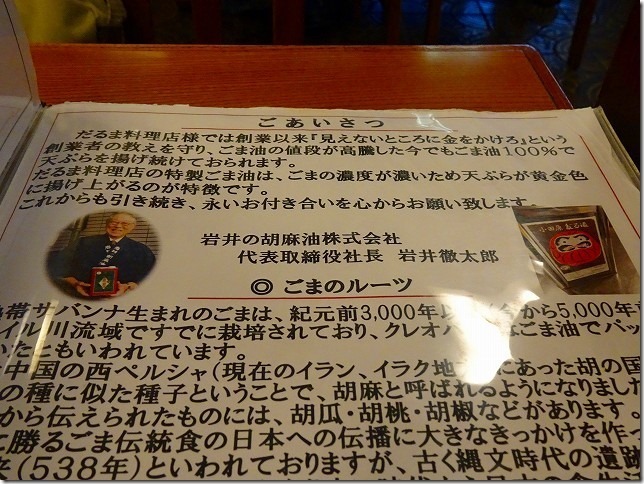 ごあいさつ
だるま料理店様では創業以来『見えないところに金をかけろ』という
創業者の教えを守り、ごま油の値段が高騰した今でもごま油100%で
天ぷらを揚げ続けておられます。
だるま料理店の特製ごま油は、ごまの濃度が濃いため天ぷらが黄金色
に揚げ上がるのが特徴です。
これからも引き続き、永いお付き合いを心からお願い致します。
岩井の胡麻油株式会社
代表取締役社長 岩井徹太郎
◎ ごまのルーツ
帯サバンナ生まれのごまは、紀元前3,000年以 今から5,000年
イル川流域ですでに栽培されており、クレオパ はごま油でパッ
いたともいわれています。
中国の西ペルシャ(現在のイラン、イラク地 にあった胡の国
の種に似た種子ということで、胡麻と呼ばれるようになりました
から伝えられたものには、胡瓜・胡桃・胡椒などがあります。
に勝るごま伝統食の日本への伝播に大きなきっかけを作っ
来(538年)といわれておりますが、古く縄文時代の遺跡